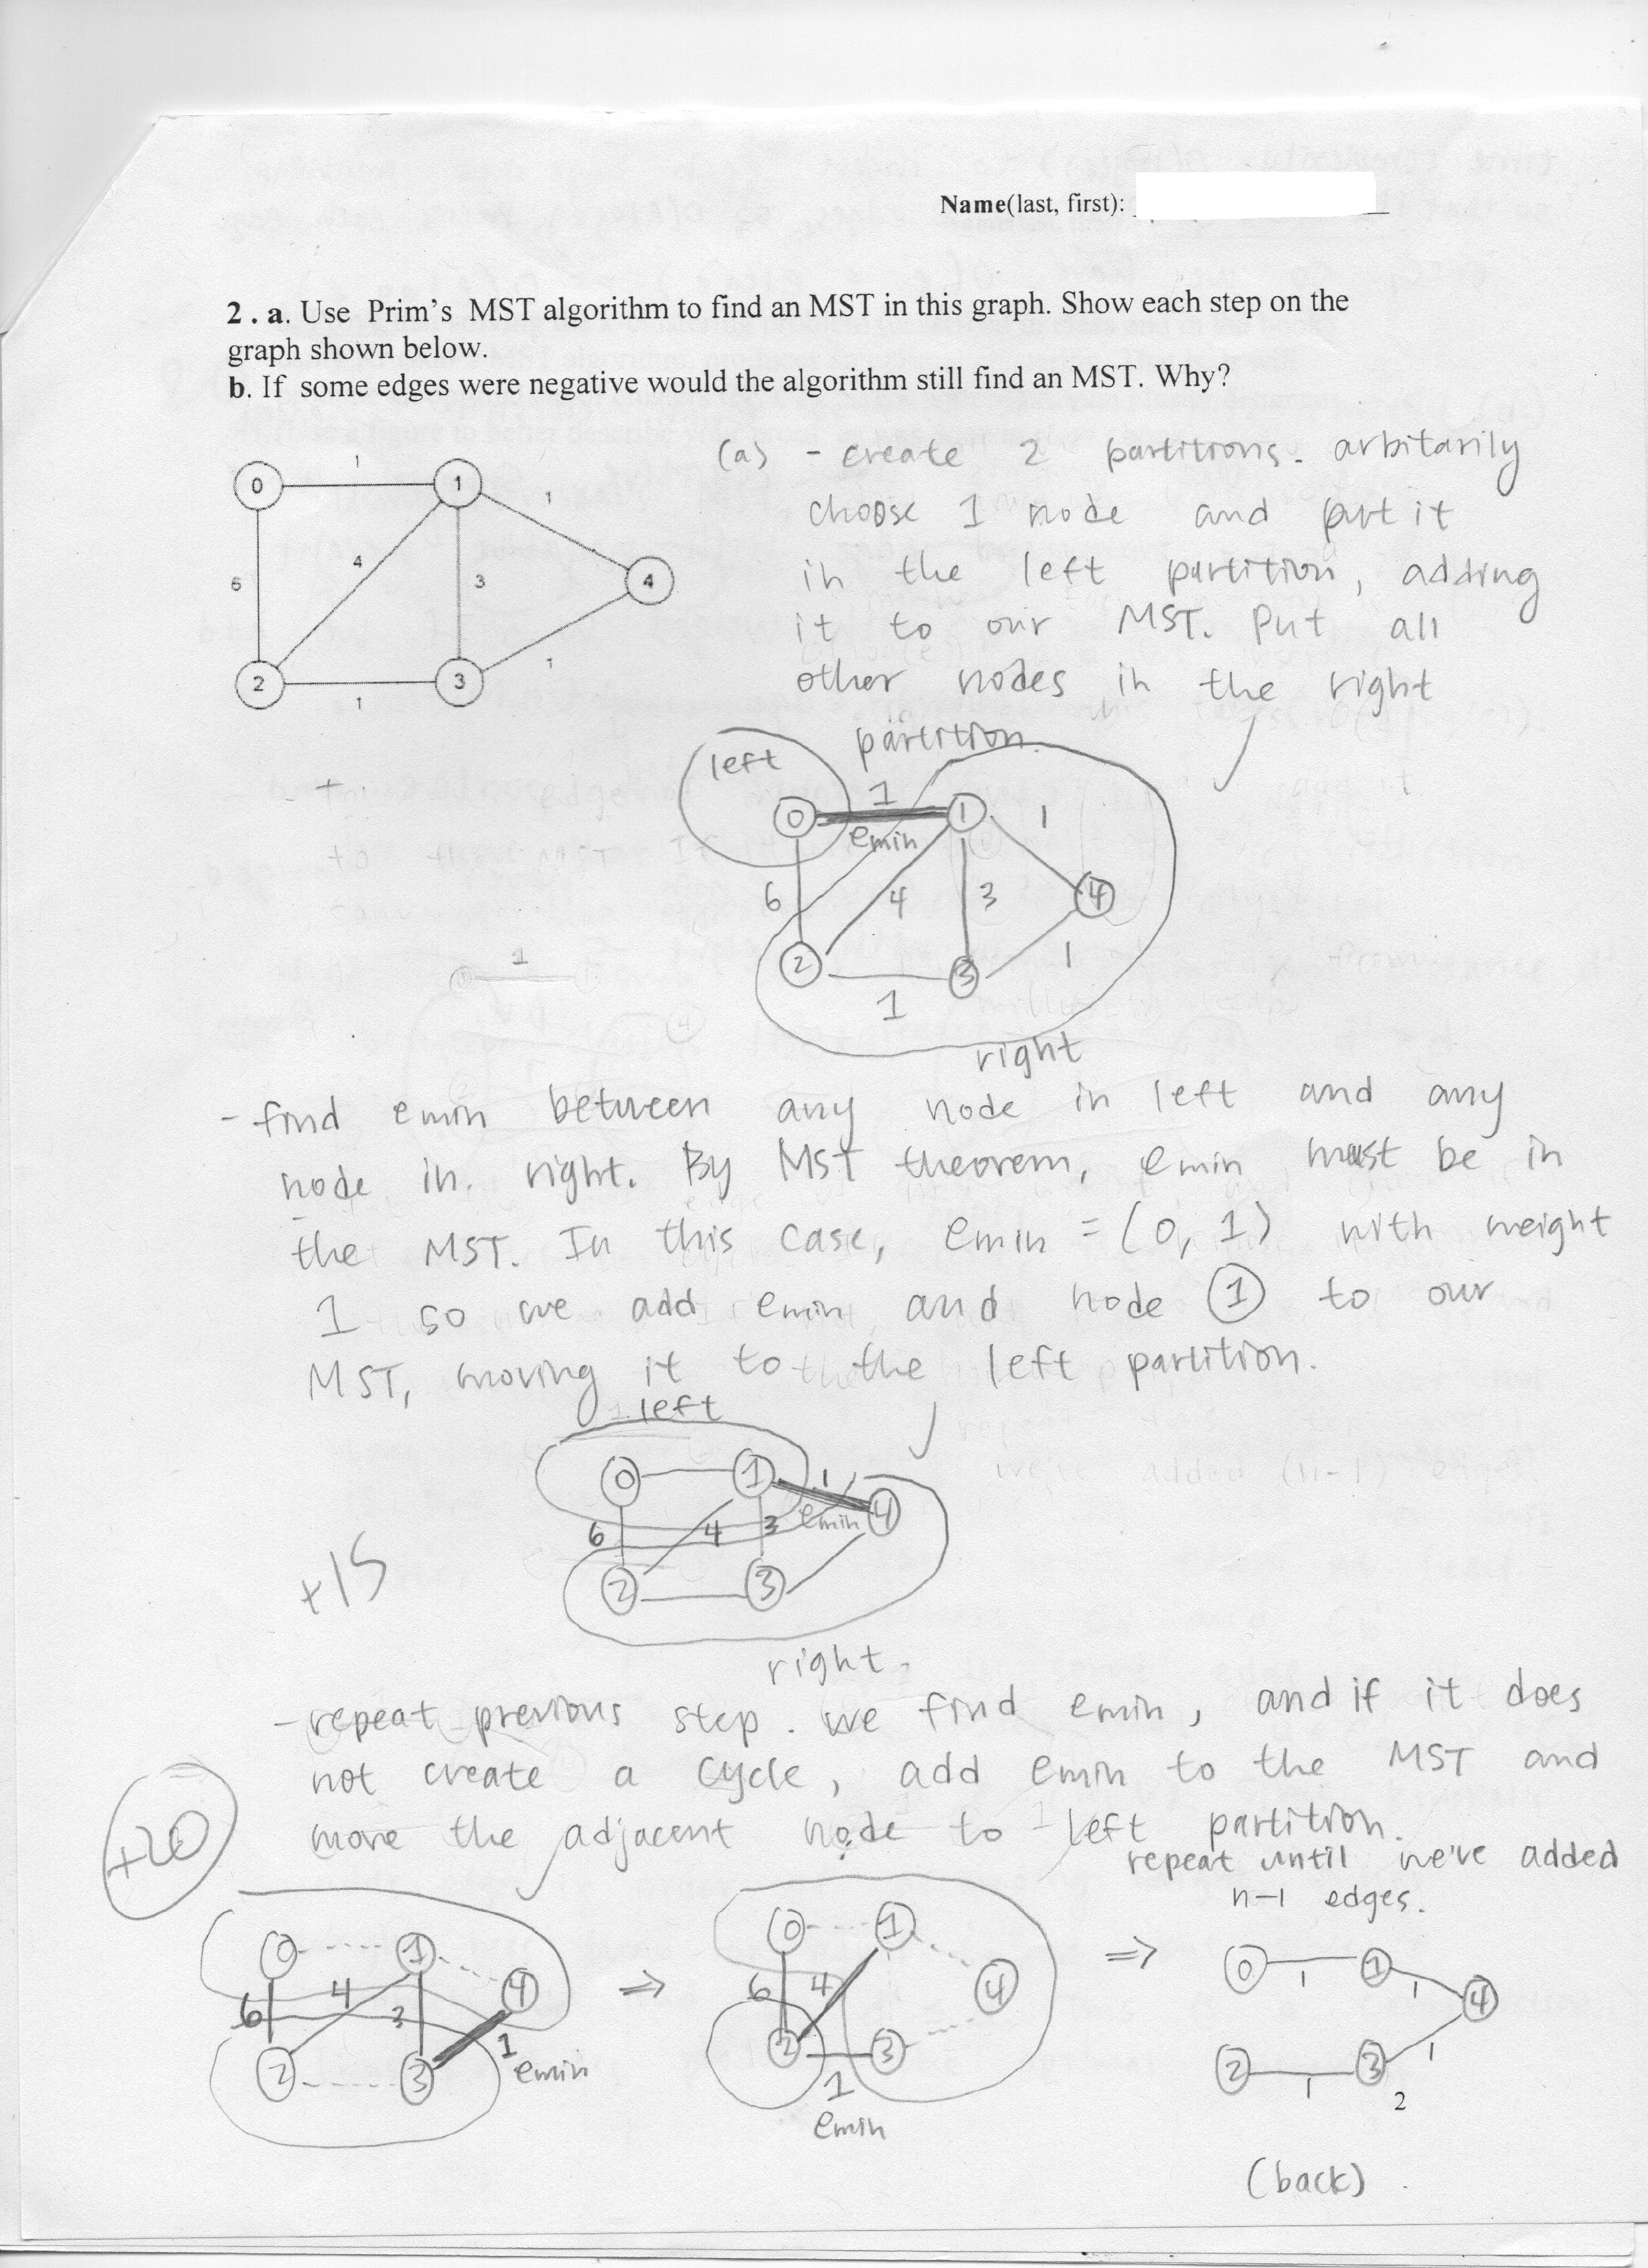 Name(last, first):
2 . a. Use Prim's MST algorithm to find an MST in this graph. Show each step on the
graph shown below.
b. If some edges were negative would the algorithm still find an MST. Why?
0 1 1 1 4
6 4 3
2 1 3 1
(a) - create 2 partitions. arbitarily
choose 1 node and put it
in the left partition, adding
it to our MST. Put all
other nodes in the right
partition.
left
0 1 emin 1 1
6 4 3 4
2 1 3 1
right
- find emin between any node in left and any
node in right. By MST theorem, emin must be in
the MST. In this case, emin = (0, 1) with weight
1 so we add emin and node 1 to our
MST, moving it to the left partition.
left
0 1 1
6 4 3 emin 4
2 3
right.
+15
- repeat previous step. we find emin, and if it does
not create a cycle, add emin to the MST and
move the adjacent node to left partition.
repeat until we've added
n-1 edges.
+20
0 1 4
6 4 3
2 3 1
emin
⇒
0 1 4
6 4
2 1 3
emin
⇒
0 1 1 1 4
2 1 3 1
2
(back)